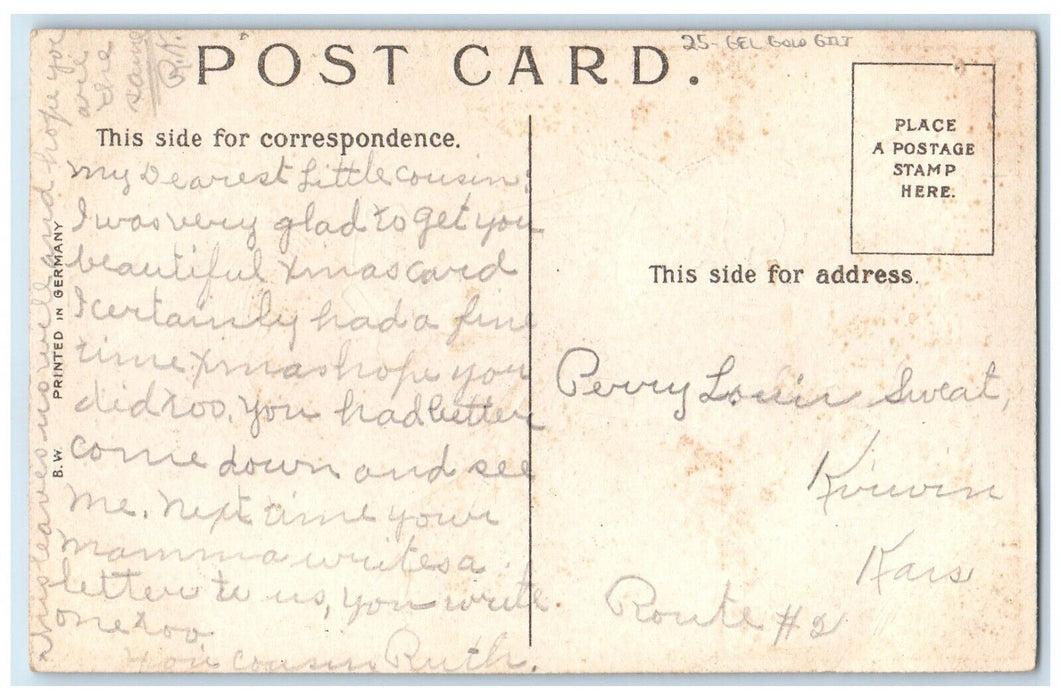 25- GEL GOLD GILT
POST CARD.
PLACE
A POSTAGE
STAMP
HERE.
This side for correspondence.
My Dearest Little cousin:
I was very glad to get you
beautiful xmas card
I certainly had a fine
time xmas hope you
did too. you had better
come down and see
me. Next time your
mamma writes a
letter to us, you write
one too
Your cousin Ruth.
This leaves us well and hope you
are
the
same
R.R.
B.W. PRINTED IN GERMANY
This side for address.
Perry Louis Sweat,
Kirwin
Kans
Route #2